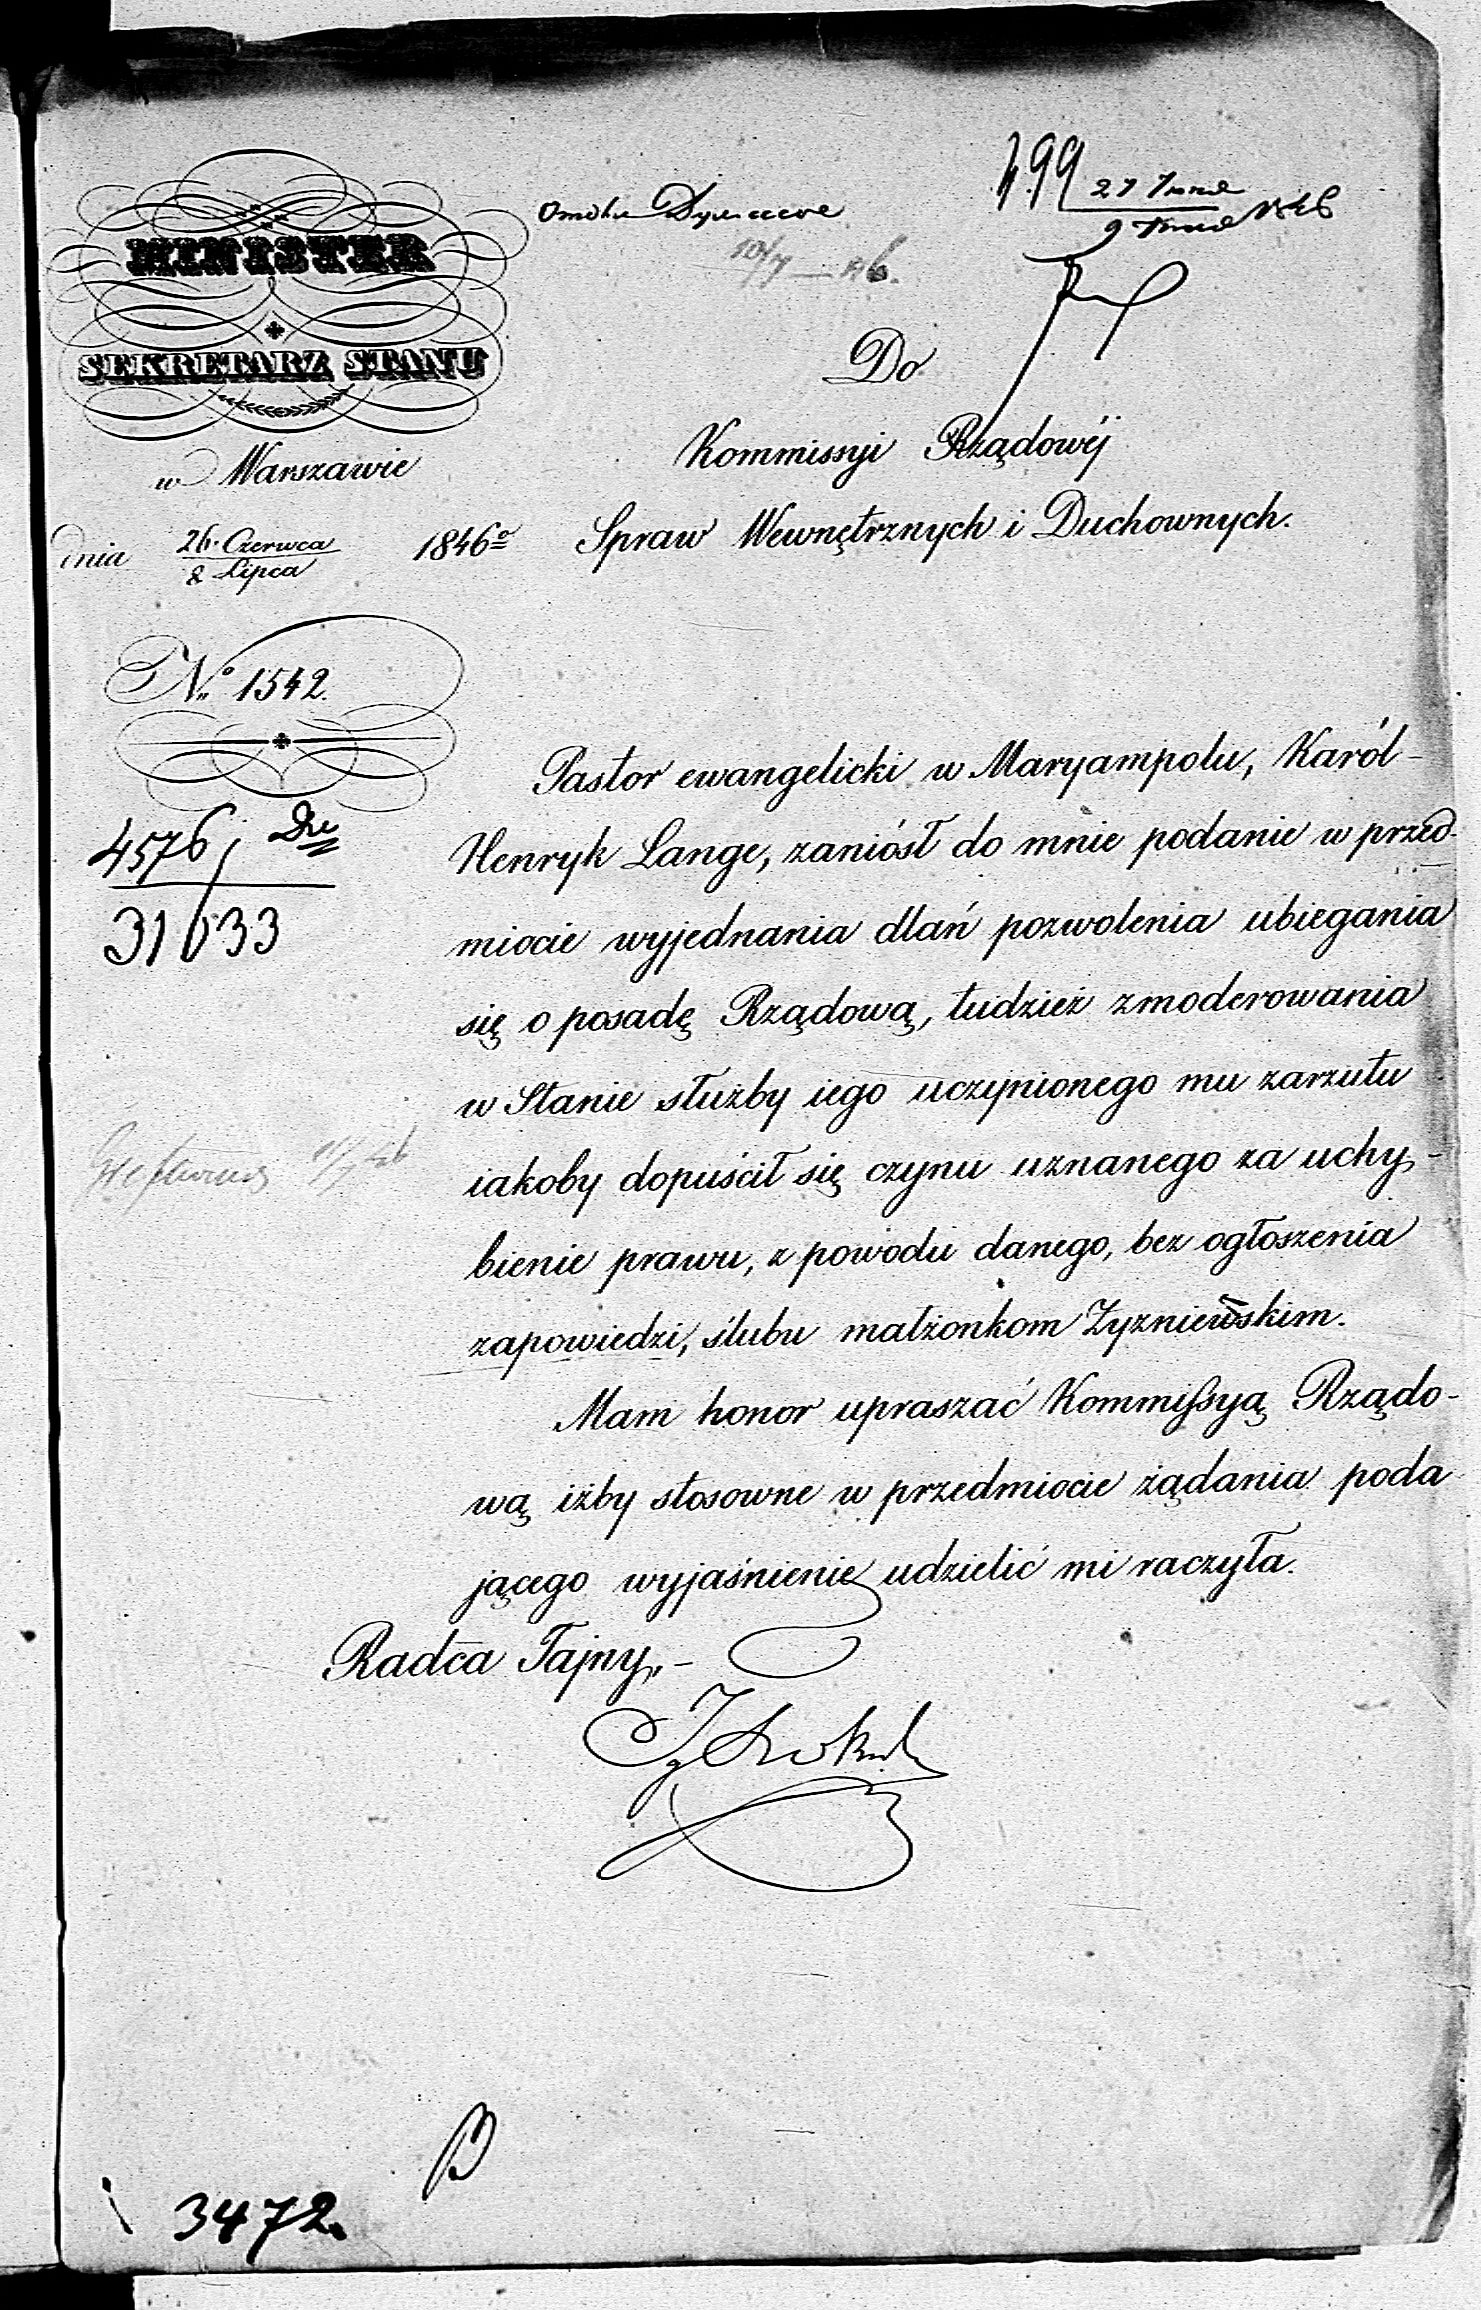 499 27 1846
9
MINISTER
SEKRETARZ STANU
w Warszawie
dnia 26. Czerwca 1846º
8 Lipca
Do
Kommissyi Rządowéj
Spraw Wewnętrznych i Duchownych.
Nº 1542.
4576 Dre
31633
Pastor ewangelicki w Maryampolu, Karól-
Henryk Lange, zaniósł do mnie podanie w przed-
miocie wyjednania dlań pozwolenia ubiegania
się o posadę Rządową, tudzież zmoderowania
w Stanie służby iego uczynionego mu zarzutu
iakoby dopuścił się czynu uznanego za uchy-
bienie prawu, z powodu danego, bez ogłoszenia
zapowiedzi, ślubu małżonkom Żyzniewskim.
Mam honor upraszać Kommissyą Rządo-
wą iżby stosowne w przedmiocie żądania poda
jącego wyjaśnienie udzielić mi raczyła.
Radca Tajny,
3472.